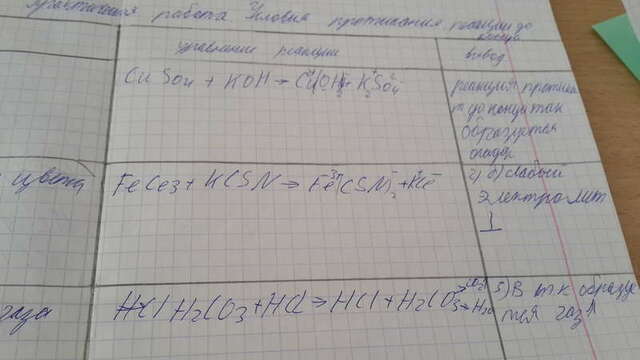 Практическая работа Условия протекания реакции до
конца
уравнение реакции
вывод
CuSO4 + KOH → Cu(OH)2 + K2SO4
реакция протекает
т до конца так
образуется
осадок
цвета
FeCe3 + KCSN → Fe3+(CSN)-3 + K+Ce-
г) б) слабый
электролит
⊥
газа
HCl H2CO3 + HCl → HCl + H2CO3 → CO2 + H2O
б) В т к образуе
тся газ↑